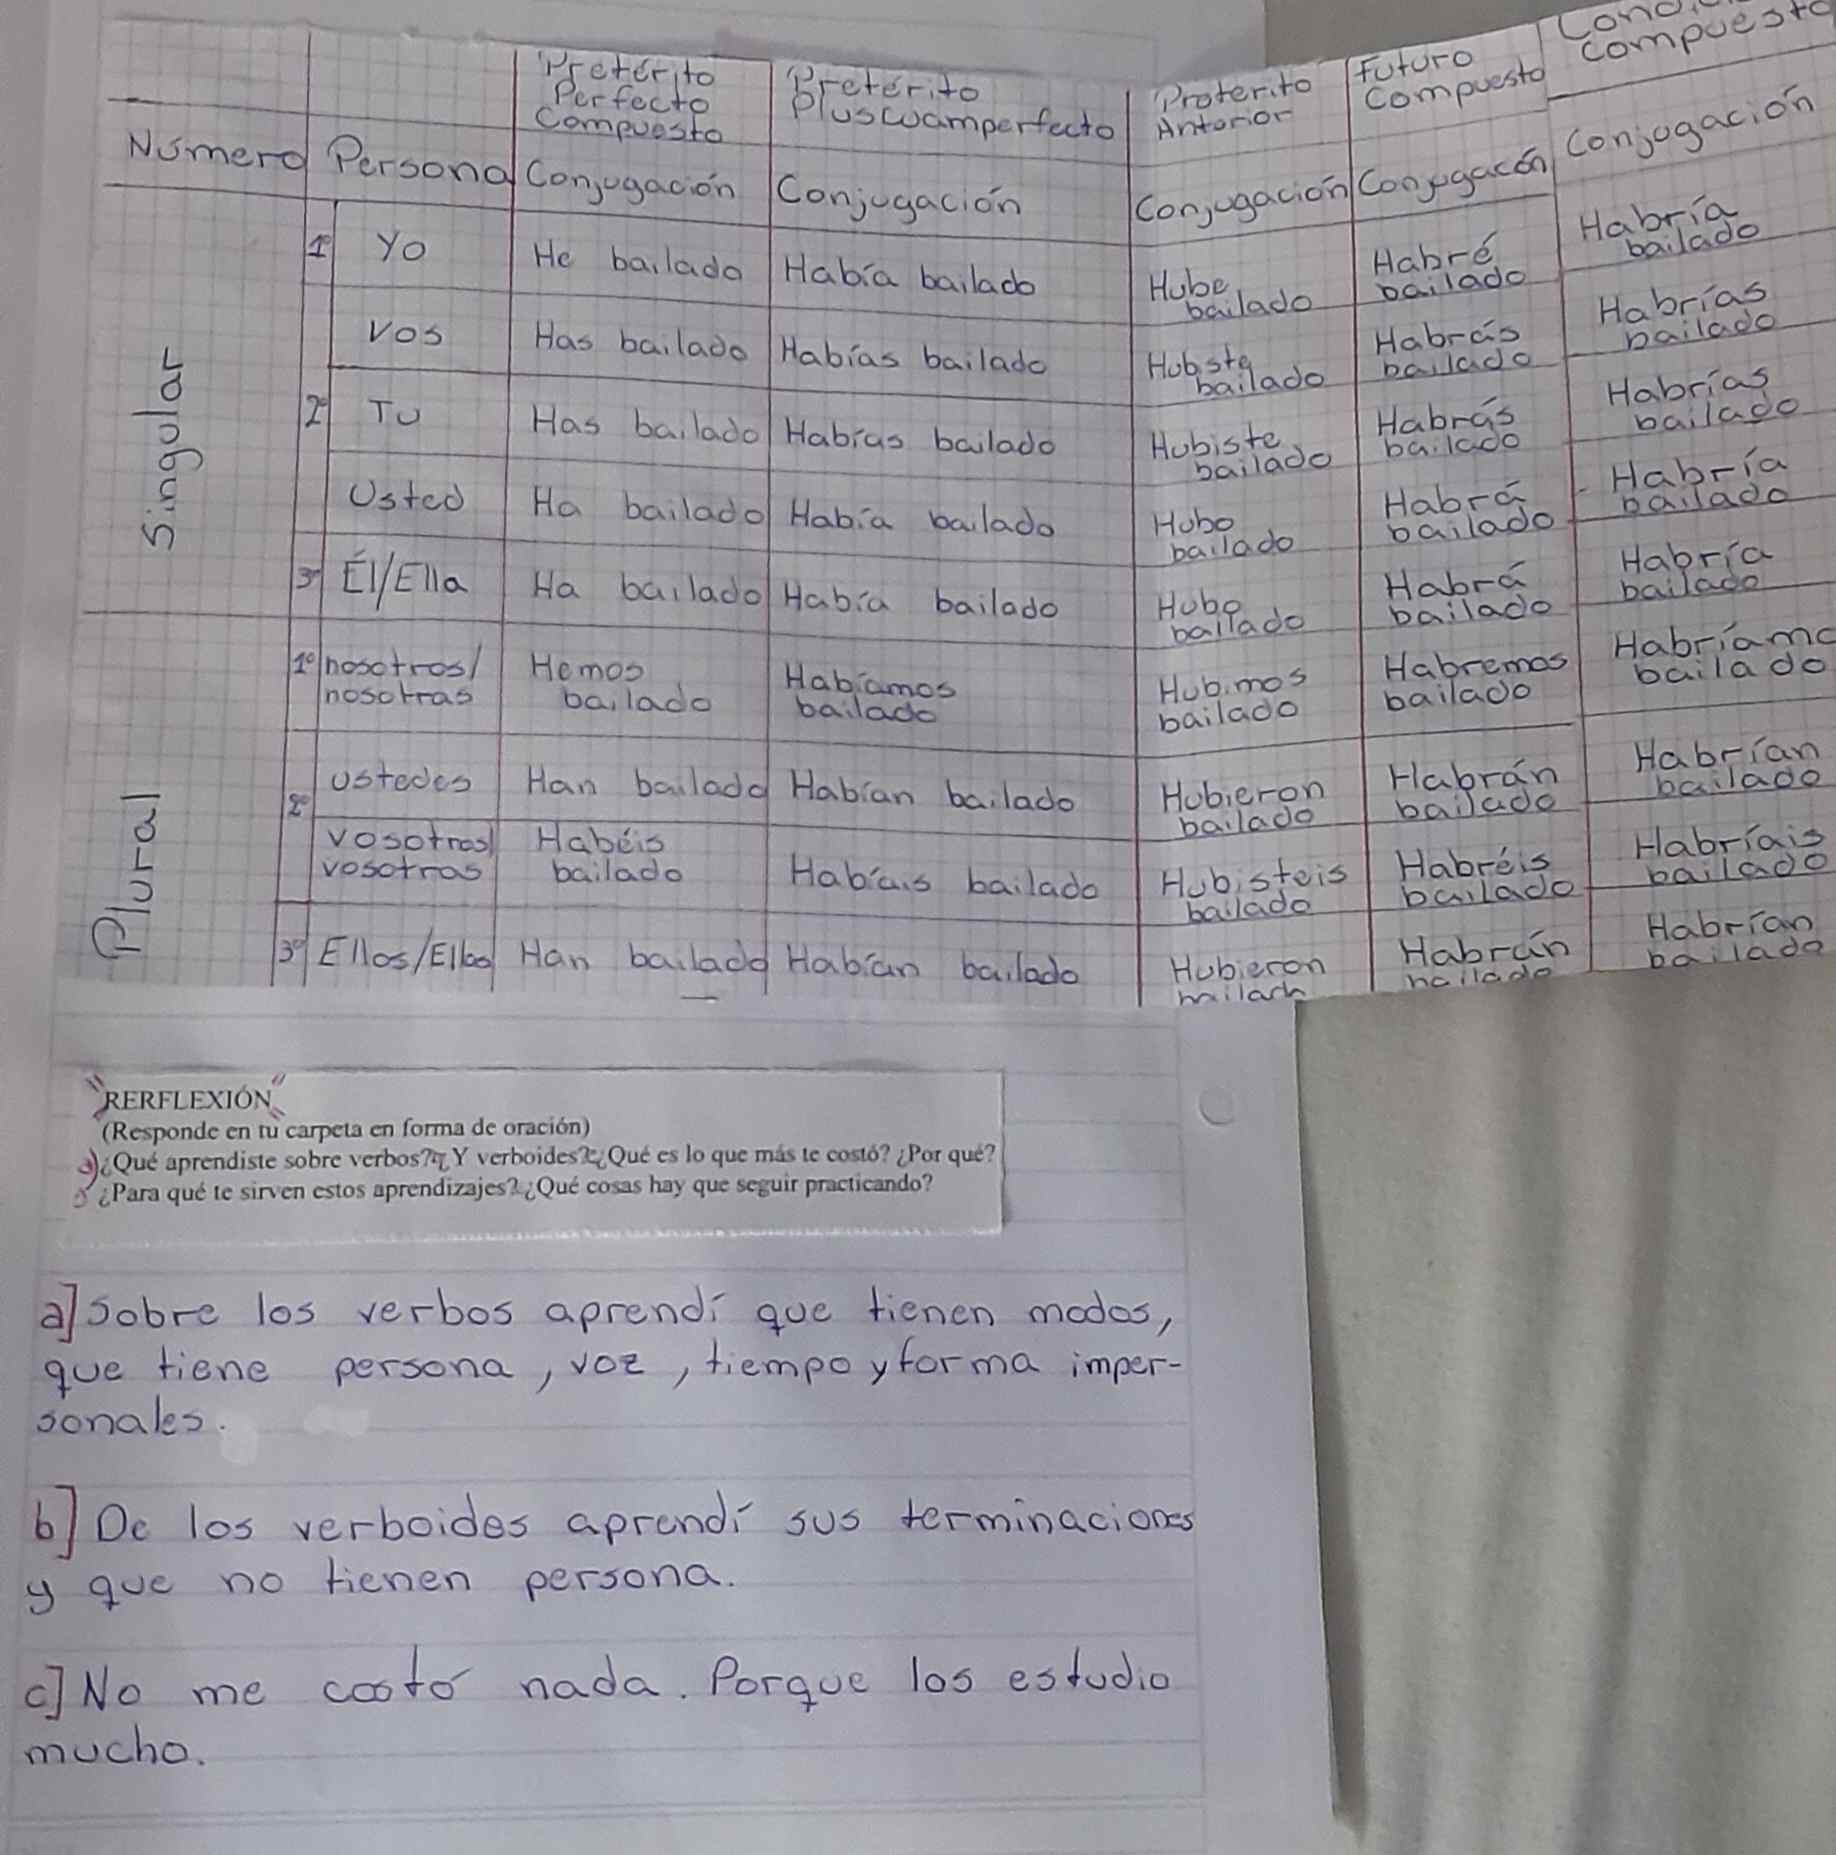 Pretérito Perfecto Compuesto Pretérito Pluscuamperfecto Proterito Anterior Futuro Compuesto Compuesto
Número Persona Conjugación Conjugación Conjugación Conjugacón Conjugación
Singular
1º Yo He bailado Había bailado Hube bailado Habré bailado Habría bailado
Vos Has bailado Habías bailado Hubste bailado Habrás bailado Habrías bailado
2º Tu Has bailado Habías bailado Hubiste bailado Habrás bailado Habrías bailado
Usted Ha bailado Había bailado Hubo bailado Habrá bailado Habría bailado
3º Él/Ella Ha bailado Había bailado Hubo bailado Habrá bailado Habría bailado
Plural
1º nosotros/ nosotras Hemos bailado Habíamos bailado Hubimos bailado Habremos bailado Habríamo bailado
2º ustedes Han bailado Habían bailado Hubieron bailado Habrán bailado Habrían bailado
vosotros/ vosotras Habéis bailado Habíais bailado Hubisteis bailado Habréis bailado Habríais bailado
3º Ellos/Ellas Han bailado Habían bailado Hubieron bailado Habrán bailado Habrían bailado
"RERFLEXIÓN"
(Responde en tu carpeta en forma de oración)
¿Qué aprendiste sobre verbos? ¿Y verboides? ¿Qué es lo que más te costó? ¿Por qué?
¿Para qué te sirven estos aprendizajes? ¿Qué cosas hay que seguir practicando?
a] Sobre los verbos aprendí que tienen modos,
que tiene persona, voz, tiempo y forma imper-
sonales.
b] De los verboides aprendí sus terminaciones
y que no tienen persona.
c] No me costó nada. Porque los estudio
mucho.